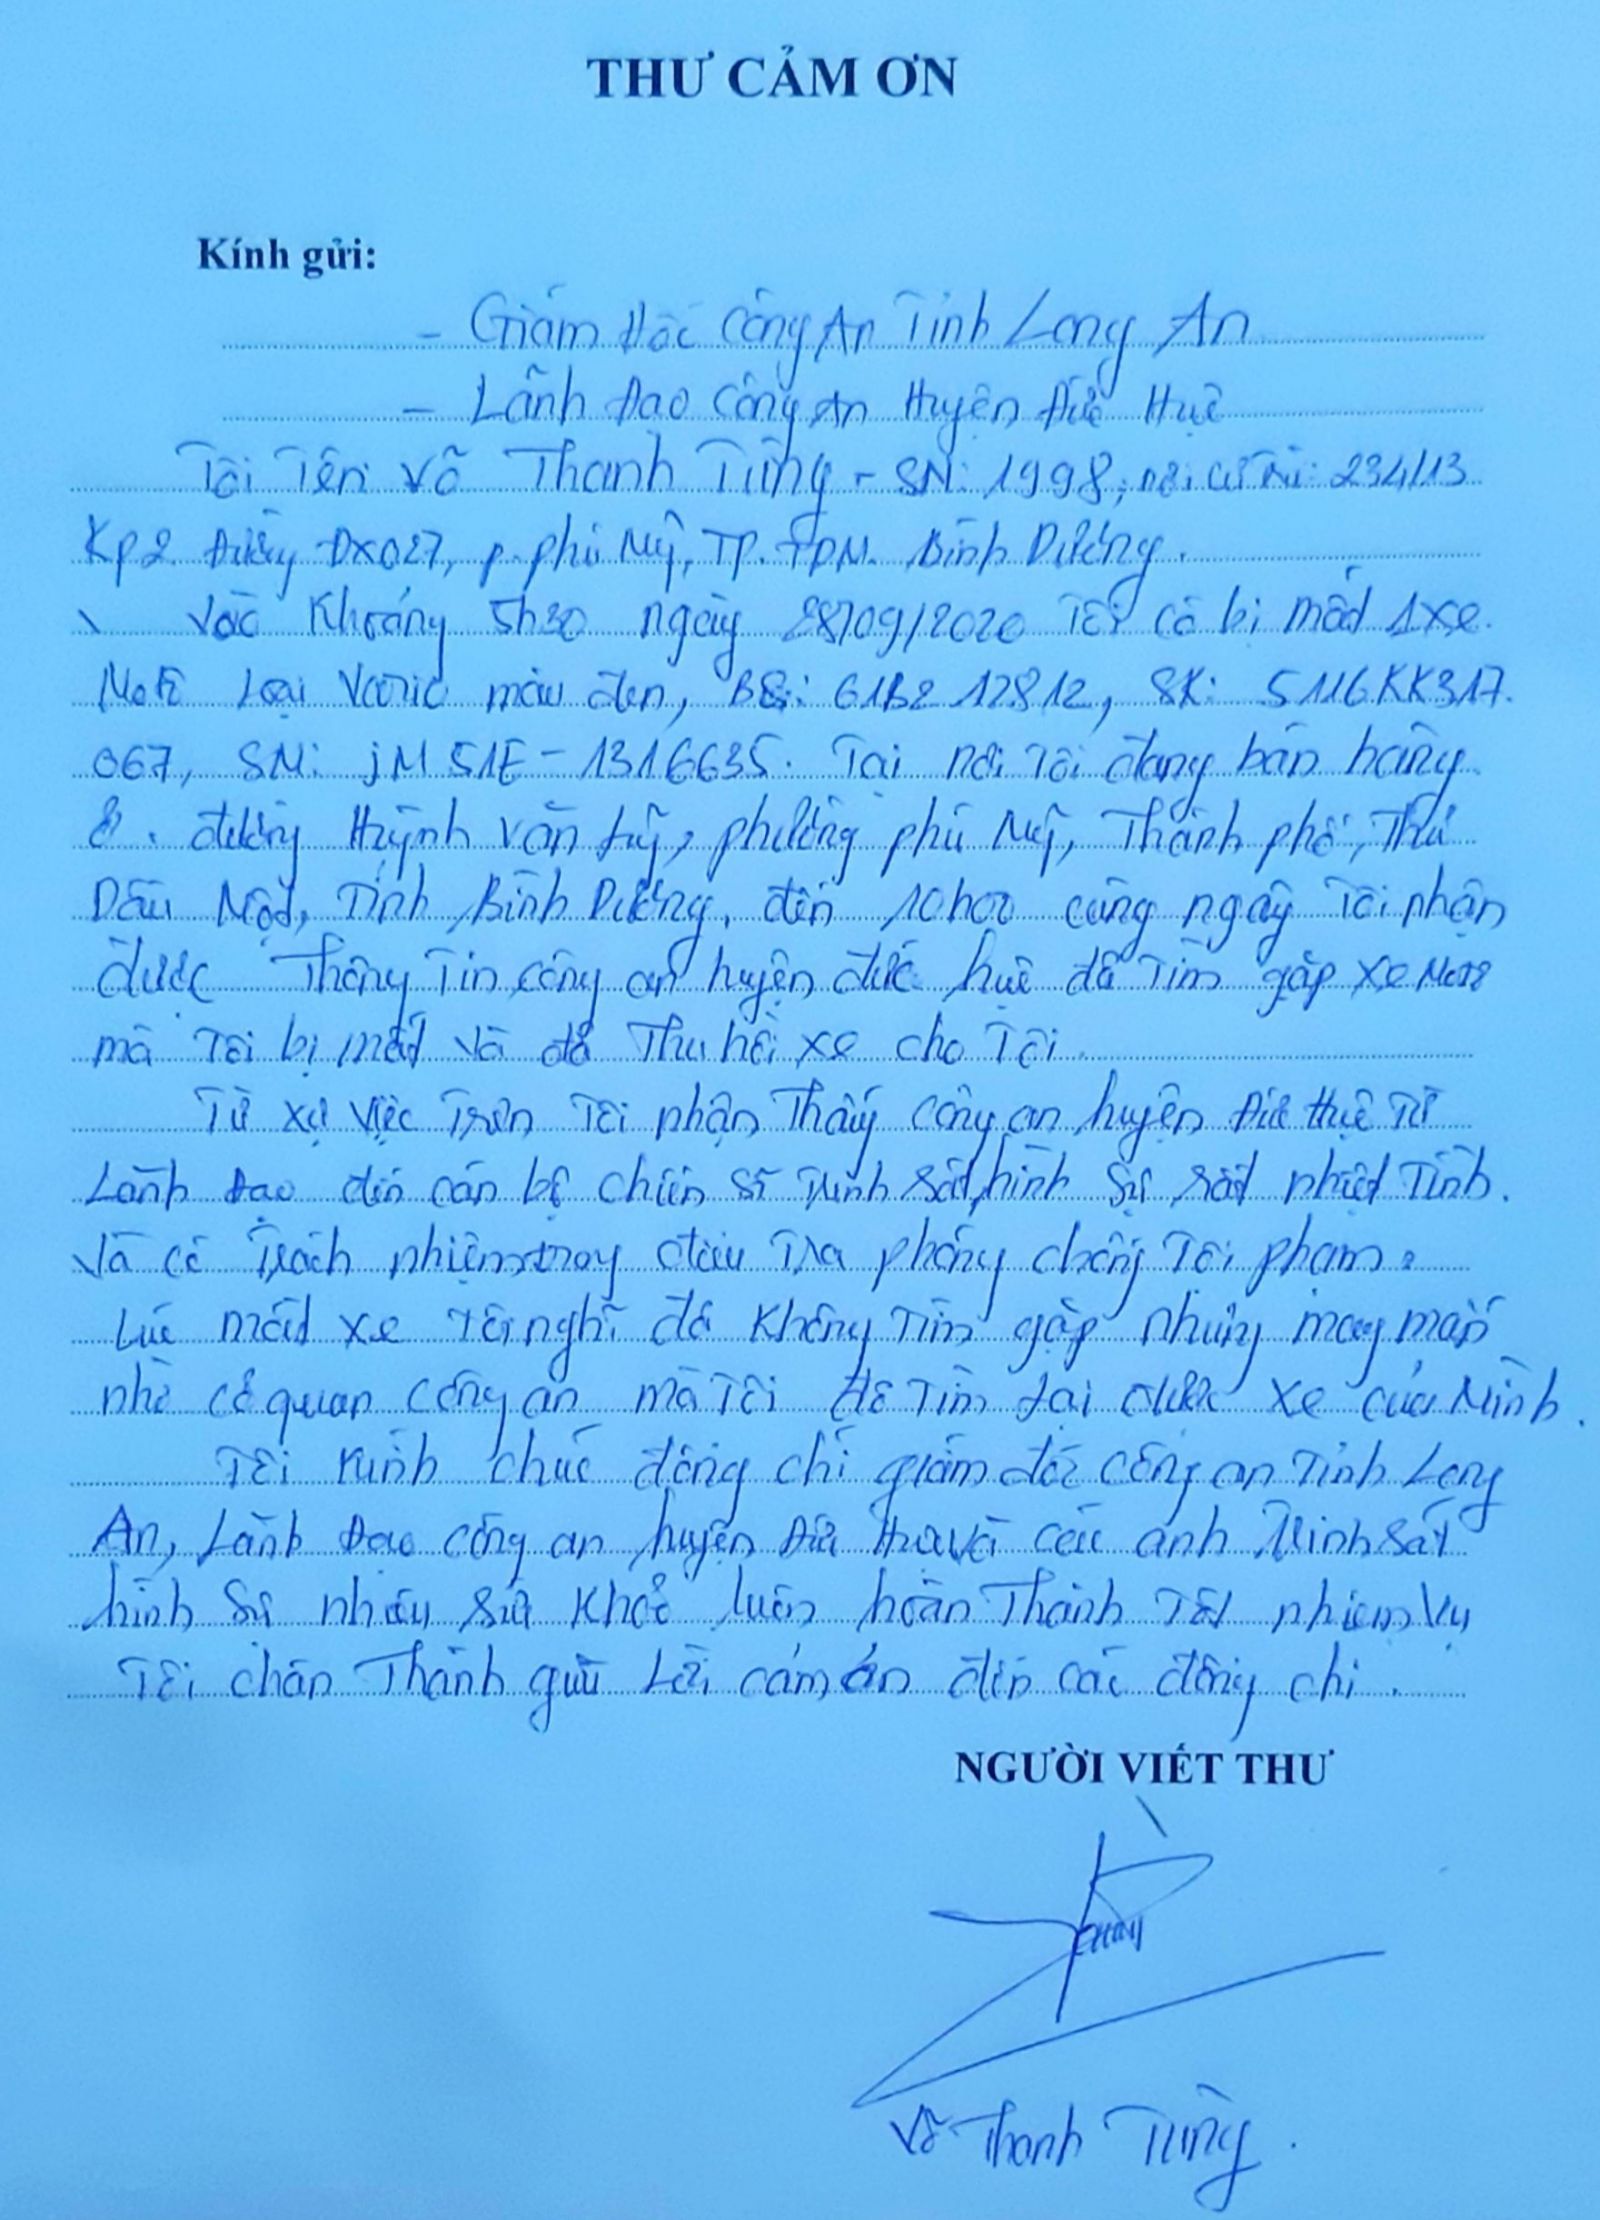 THƯ CẢM ƠN
Kính gửi:
- Giám Đốc Công An Tỉnh Long An
- Lãnh Đạo Công An Huyện Đức Huệ
Tôi Tên Võ Thanh Tùng - SN: 1998, nơi cư trú: 234/13
Kp2 Đường ĐX027, p. phú Mỹ, TP. TDM. Bình Dương.
Vào Khoảng 5h30 ngày 28/09/2020 Tôi có bị mất 1 xe
Motô Loại Vario màu đen, BS: 61B2 12812, SK: 5116KK317
067, SM: JM51E-1316635. Tại nơi Tôi đang bán hàng
ở. đường Huỳnh Văn Lũy, phường phú Mỹ, Thành phố, Thủ
Dầu Một, Tỉnh Bình Dương, đến 10h00 cùng ngày Tôi nhận
được Thông Tin công an huyện đức huệ đã Tìm gặp xe Motô
mà Tôi bị mất và đã Thu hồi xe cho Tôi.
Từ sự việc Trên Tôi nhận Thấy công an huyện Đức Huệ Từ
Lãnh Đạo đến cán bộ chiến sĩ Trinh sát hình sự rất nhiệt Tình.
Và có Trách nhiệm trong điều Tra phòng chống Tội phạm.
Lúc mất xe Tôi nghĩ đã Không Tìm gặp nhưng may mắn
nhờ cơ quan công an mà Tôi đã Tìm lại được xe của Mình.
Tôi Kính chúc đồng chí giám đốc công an Tỉnh Long
An, Lãnh Đạo công an huyện Đức Huệ và các anh Trinh sát
hình sự nhiều sức Khoẻ luôn hoàn Thành Tốt nhiệm vụ
Tôi chân Thành gửi Lời cảm ơn đến các đồng chí.
NGƯỜI VIẾT THƯ
Võ Thanh Tùng.